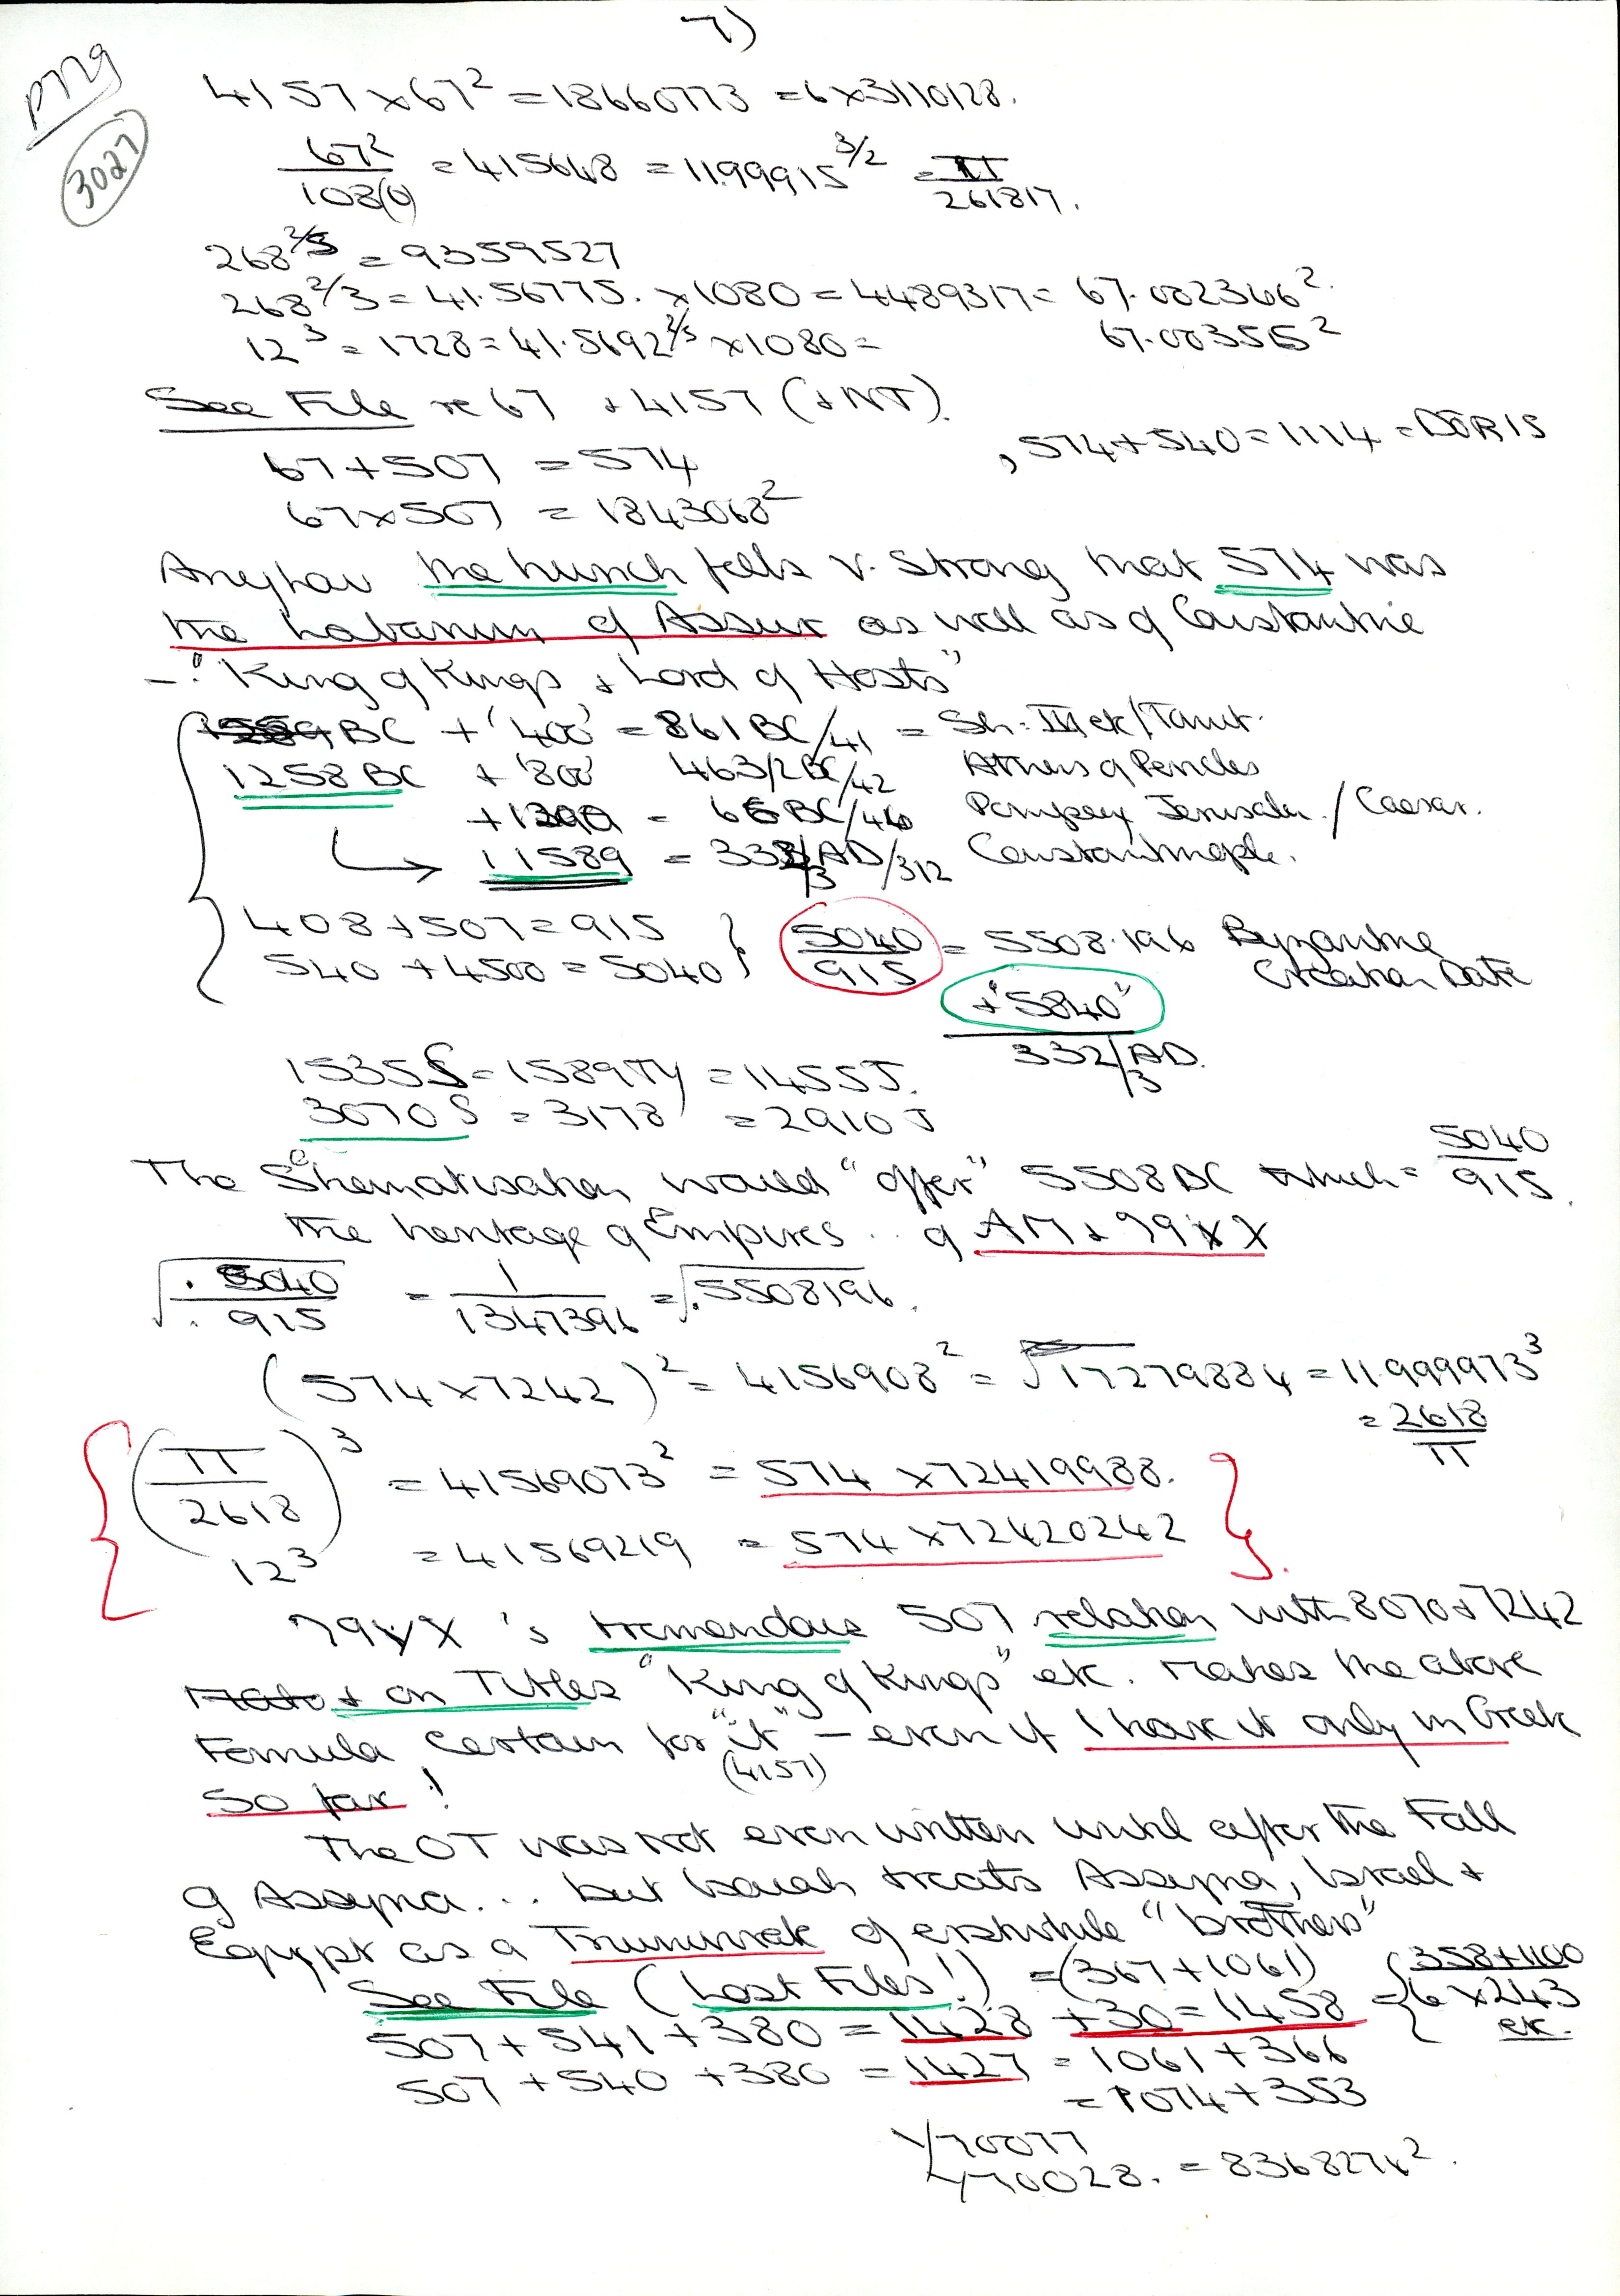 7)
PM9
3027
4157 × 67² = 18660773 = 6 × 3110128.
67²/108(0) = 415648 = 11.99915^3/2 = π/261817.
268^2/3 = 9359527
268^2/3 = 41.56775. × 1080 = 4489317 = 67.002366²
12³ = 1728 = 41.5692^2/3 × 1080 = 67.003555²
See File re 67 + 4157 (+ NT).
67 + 507 = 574 , 574 + 540 = 1114 = DORIS
67 × 507 = 1843068²
Anyhow the hunch feels v. strong that 574 was
the Labarum of Assur as well as of Constantine
– "King of Kings + Lord of Hosts"
BC + '400' = 861 BC/41 = Sh. III ek/Tanit.
1258 BC + '800' 463/2 BC/42 Athens of Pericles
+ 1200 = 66 BC/46 Pompey Jerusalem / Caesar.
↳ 11589 = 332/3 AD/312 Constantinople.
408 + 507 = 915
540 + 4500 = 5040 } 5040/915 = 5508.196 Byzantine Creation Date
+ "5840"
332/3 AD.
1535 S = 1589 Ty = 1455 J.
3070 S = 3178 = 2910 J
The Shematisation would "offer" 5508 BC which = 5040/915.
the heritage of Empires .. of
√.5040/.915 = 1/1347396 = √.5508196.
(574 × 7242)² = 4156908² = 17279884 = 11.999973³
= 2618/π
(π/2618)³ = 41569073² = 574 × 72419988.
12³ = 41569219 = 574 × 72420242
's tremendous 507 relation with 8070 + 7242
+ on Titles "King of Kings" etc. makes the above
Formula certain for "it" – even if I have it only in Greek
(4157)
So far!
The OT was not even written until after the Fall
of Assyria... but Isaiah treats Assyria, Israel +
Egypt as a Triumvirate of erstwhile "brothers"
See File (Lost Files!) = (367 + 1061)
507 + 541 + 380 = 1428 + 30 = 1458 = { 358 + 1100
6 × 243
etc.
507 + 540 + 380 = 1427 = 1061 + 366
= 1074 + 353
√70077
√70028. = 8368274².